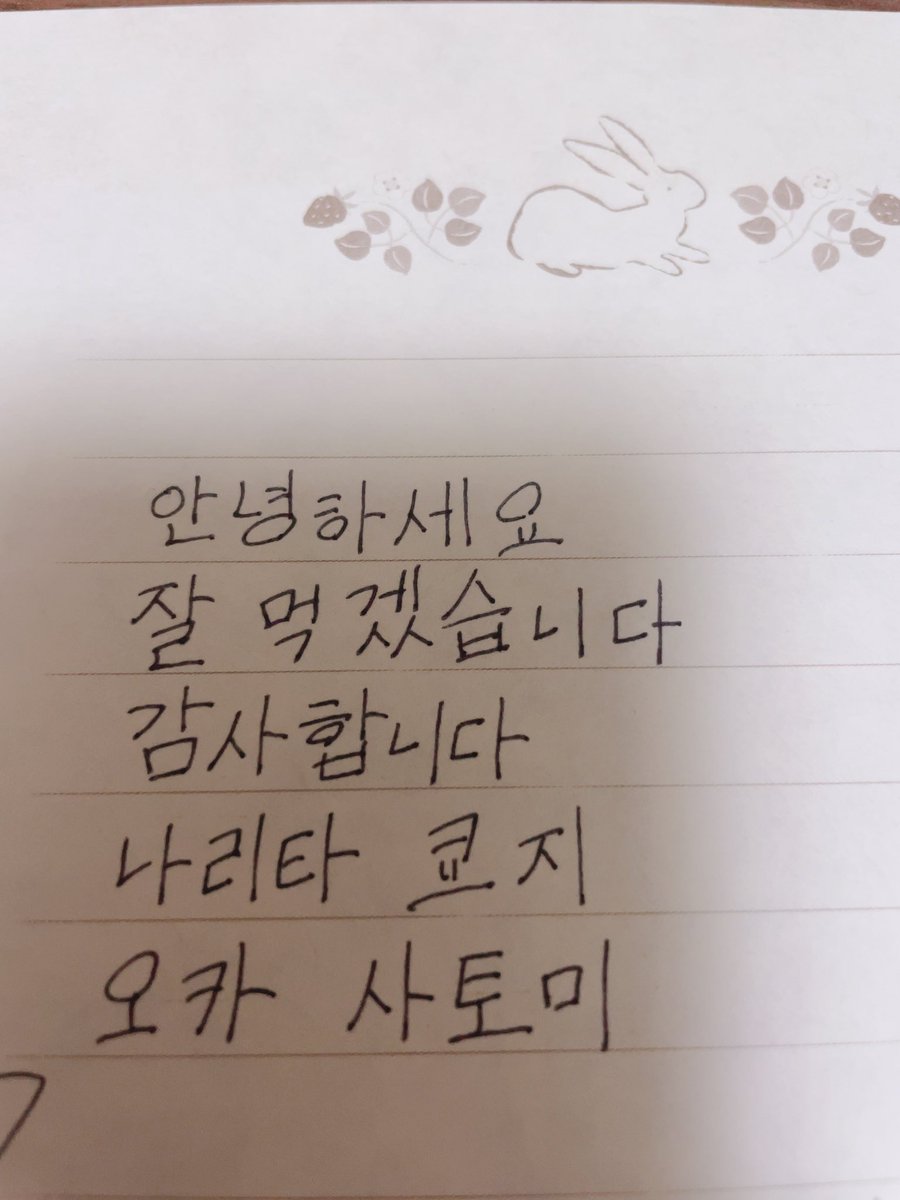 안녕하세요
잘 먹겠습니다
감사합니다
나리타 쿄지
오카 사토미